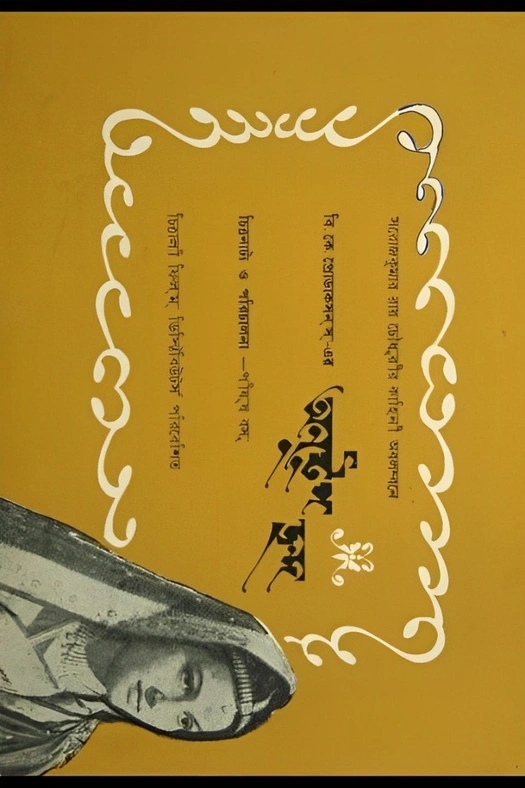 সরোজকুমার রায় চৌধুরীর কাহিনী অবলম্বনে
বি. কে প্রোডাকসন্ স্-এর
অনুষ্টুপ ছন্দ
চিত্রনাট্য ও পরিচালনা —পীযূষ বসু
ফিল্ম্ ডিস্ট্রিবিউটার্স পরিবেশিত